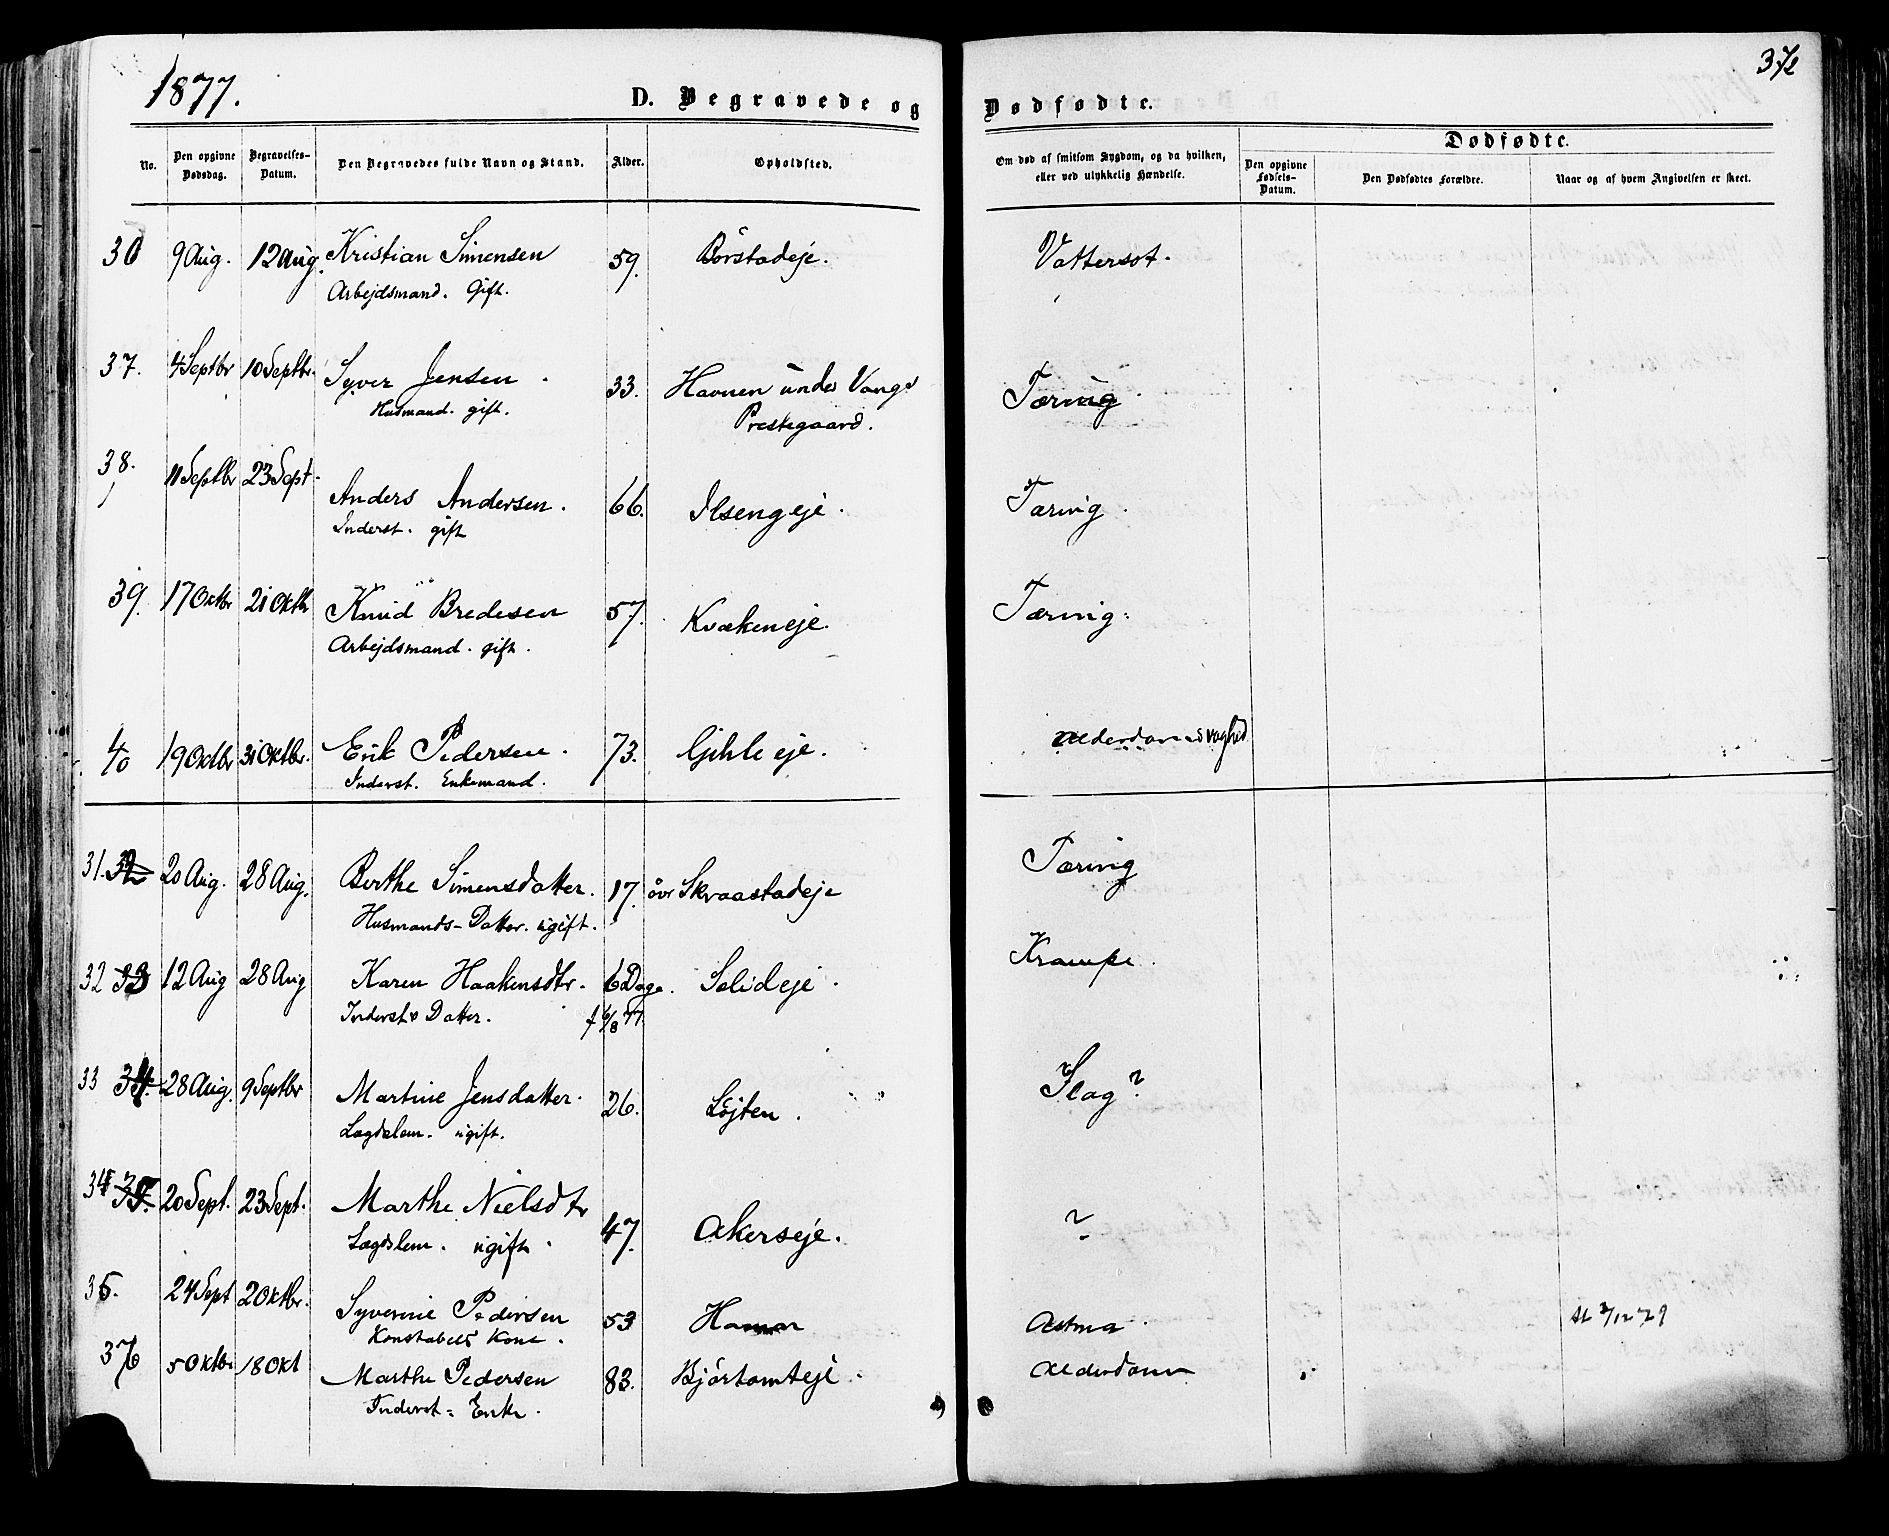 1877.
D. Begravede og Dødfødte.
37
No.
Den opgivne Dødsdag.
Begravelses-Datum.
Den Begravedes fulde Navn og Stand.
Alder.
Opholdsted.
Om død af smitsom Sygdom, og da hvilken,
eller ved ulykkelig Hændelse.
Dødfødte.
Den opgivne Fødsels-Datum.
Den Dødfødtes Forældre.
Naar og af hvem Angivelsen er skeet.
36 9 Aug. 12 Aug. Kristian Simensen 59. Børstadeje. Vattersot.
Arbejdsmand. Gift.
37. 4 Septbr 10 Septbr. Syver Jensen 33. Havnen under Vangs Tæring.
Husmand. gift. Prestegaard.
38. 11 Septbr 23 Sept. Anders Andersen. 66. Ilsengeje. Tæring.
Inderst. gift
39. 17 Oktbr 21 Oktb Knud Bredesen 57. Kvækeneje. Tæring.
Arbejdsmand. gift.
40 19 Oktbr 31 Oktbr. Erik Pedersen. 73. Gihle eje. Alderdomssvaghed
Inderst. Enkemand.
31. 32 20 Aug. 28 Aug. Berthe Simensdatter. 17. övr Skraastadeje Tæring
Husmands-Datter. ugift.
32 33 12 Aug 28 Aug Karen Haakensdtr. 6 Dage. Solideje. Krampe.
Inderst Datter. f 6/8 77.
33 34. 28 Aug. 9 Septbr Martine Jensdatter. 26. Løjten. Slag?
Lægdslem. ugift.
34 35. 20 Sept. 23 Sept. Marthe Nielsdtr 47. Akerseje. ?
Lægdslem. ugift.
35. 24 Sept 2 Oktbr. Syverine Pedersen 53 Hamar Astma
Konstabels Kone.
36 5 Oktbr 18 Okt Marthe Pedersen 83. Bjørtomteje. Alderdom
Inderst = Enke.